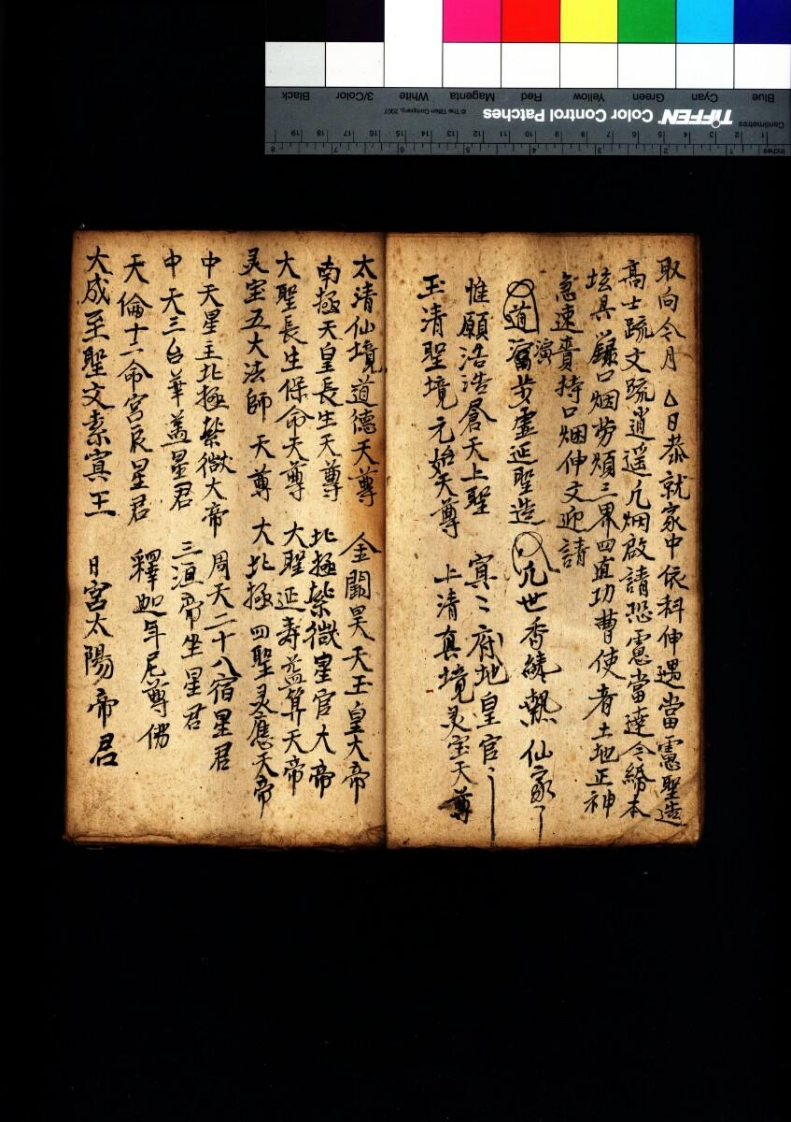 取向今月厶日恭就家中依科伸遇當憲聖造
高士疏文疏逍遥凡烟啟請恐憲當達今綈本
坛具籙口烟劳煩三界四直功曹使者土地正神
急速賫持口烟伸文迎請
道演步虚延聖造凡世香繞熱仙家了
惟願浩浩蒼天上聖 㝠〻府地皇官
玉清聖境元始天尊 上清真境灵宝天尊
太清仙境道德天尊 金闕昊天玉皇大帝
南極天皇長生天尊 北極紫微皇官大帝
大聖長生保命天尊 大聖延寿益算天帝
灵宝五大法師天尊 大北極四聖灵應天帝
中天星主北極紫微大帝 周天二十八宿星君
中天三台華盖星君 三洹帝坐星君
天倫十二命宮辰星君 釋迦牟尼尊佛
大成至聖文素㝠王 日宮太陽帝君
TIFFEN Color Control Patches
© The Tiffen Company, 2007
Blue Cyan Green Yellow Red Magenta White 3/Color Black
Centimetres
Inches